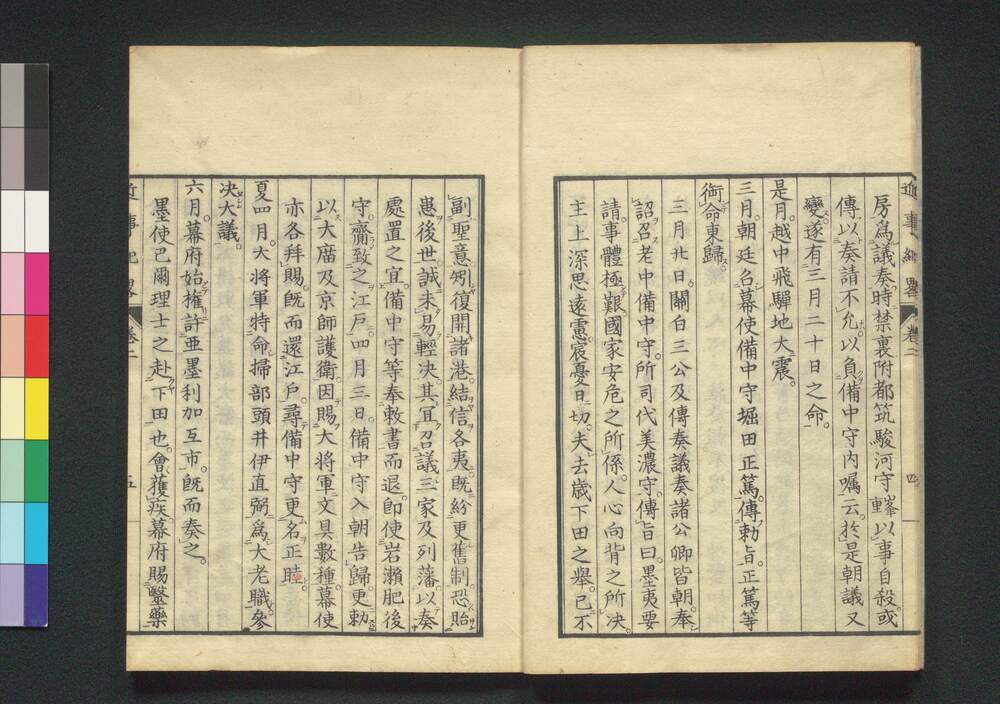 房爲議奏時禁裏附都筑駿河守峯重以事自殺或
傳以奏請不允以負備中守内囑云於是朝議又
變遂有三月二十日之命
是月越中飛驒地大震
三月朝廷召幕使備中守堀田正篤傳勅旨正篤等
銜命東歸
三月廿日關白三公及傳奏議奏諸公卿皆朝奉
詔召老中備中守所司代美濃守傳旨曰墨夷要
請事體極艱國家安危之所係人心向背之所決
主上深思遠慮宸憂日切夫去歲下田之舉已不
副聖意矧復開諸港結信各夷既紛更舊制恐貽
患後世誠未易輕決其宜召議三家及列藩以奏
處置之宜備中守等奉敕書而退卽使岩瀨肥後
守齎致之江戸四月三日備中守入朝告歸更勅
以大廣及京師護衛因賜大將軍文具數種幕使
亦各拜賜既而還江戸尋備中守更名正睦
夏四月大将軍特命掃部頭井伊直弼爲大老職參
決大議
六月幕府始權許亞墨利加互市既而奏之
墨使巴爾理士之赴下田也會獲疾幕府賜醫藥
近事紀畧 卷二 五